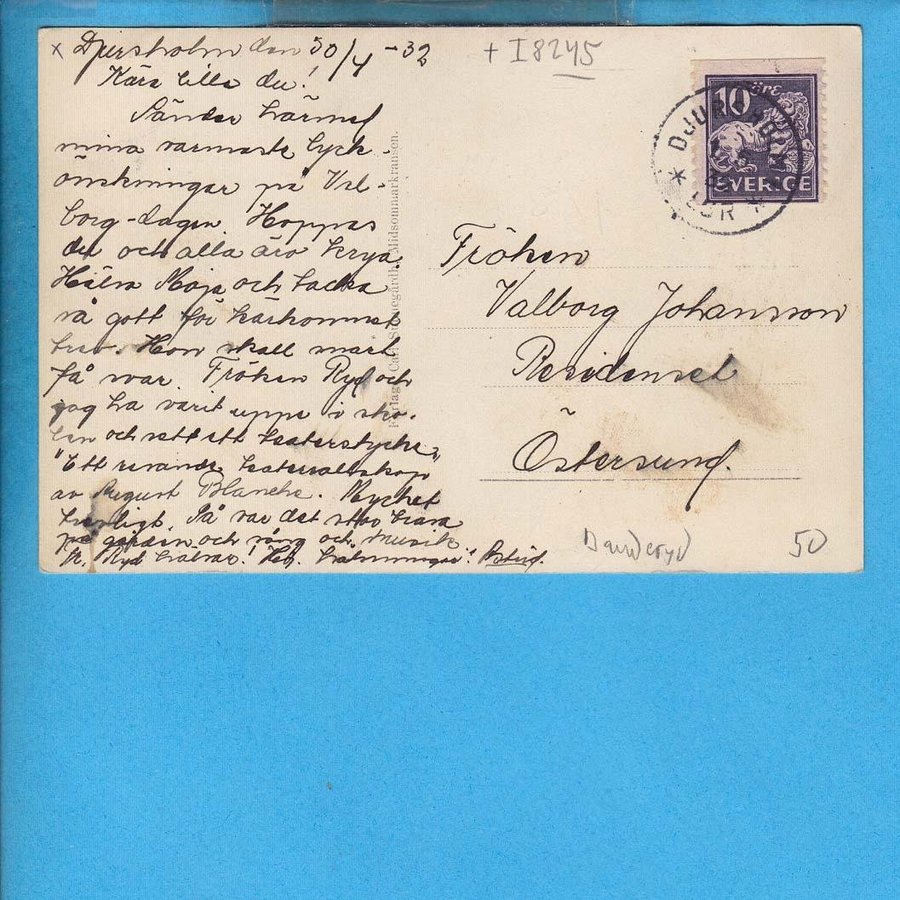 x Djursholm den 30/4 -32
Kära lilla du!
Sänder härmed
mina varmaste lyck-
önskningar på Val-
borg-dagen. Hoppas
du och alla äro krya.
Hälsa Maja och tacka
så gott för kärkommet
brev. Hon skall snart
få svar. Fröken Ryd och
jag ha varit uppe i sko-
lan och sett ett teaterstycke,
"Ett resande teatersällskap"
av August Blanche. Mycket
trevligt. Så var det stor brasa
på gården och sång och musik.
Ryd hälsar! Astrid.
+ I8245
10 ÖRE
SVERIGE
DJURSHOLM
* LBR *
Fröken
Valborg Johansson
Residenset
Östersund.
Förlag: Carl Midsommarkransen.
Danderyd
50